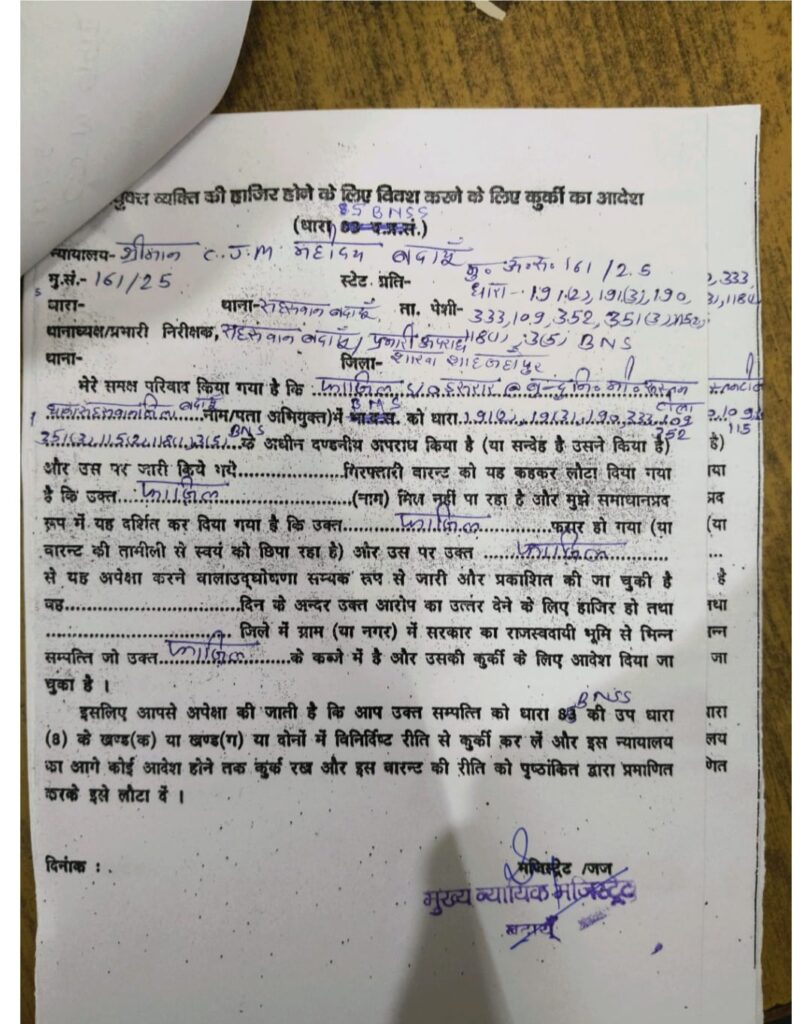 युक्त व्यक्ति की हाजिर होने के लिए विवश करने के लिए कुर्की का आदेश
85 BNSS
(धारा 83 द.प्र.सं.)
न्यायालय- श्रीमान C.J.M महोदय बदायूँ
मु.सं.- 161/25 स्टेट प्रति- मु० अ०सं० 161/25
धारा- 191(2), 191(3), 190,
धारा- थाना- सहसवान बदायूँ ता. पेशी- 333, 109, 352, 351(3), 115(2),
थानाध्यक्ष/प्रभारी निरीक्षक, सहसवान बदायूँ / प्रभारी अपराध 118(1), 3(5) BNS
थाना- जिला- शाखा शाहजहांपुर
मेरे समक्ष परिवाद किया गया है कि फाजिल S/o इसरार @ नि० मो०
थाना सहसवान जिला बदायूँ नाम/पता अभियुक्त)में BNS को धारा 191(2), 191(3), 190, 333, 109
352
351(3), 115(2), 118(1), 3(5) BNS के अधीन दण्डनीय अपराध किया है (या सन्देह है उसने किया है)
और उस पर जारी किये गये..................गिरफ्तारी वारन्ट को यह कहकर लौटा दिया गया
है कि उक्त फाजिल (नाम) मिल नहीं पा रहा है और मुझे समाधानप्रद
रूप में यह दर्शित कर दिया गया है कि उक्त फाजिल फरार हो गया (या
वारन्ट की तामीली से स्वयं को छिपा रहा है) और उस पर उक्त फाजिल
से यह अपेक्षा करने वालाउद्घोषणा सम्यक रूप से जारी और प्रकाशित की जा चुकी है
वह..............................दिन के अन्दर उक्त आरोप का उत्तर देने के लिए हाजिर हो तथा
.............................. जिले में ग्राम (या नगर) में सरकार का राजस्वदायी भूमि से भिन्न
सम्पत्ति जो उक्त फाजिल के कब्जे में है और उसकी कुर्की के लिए आदेश दिया जा
चुका है ।
BNSS
इसलिए आपसे अपेक्षा की जाती है कि आप उक्त सम्पत्ति को धारा 83 की उप धारा
(8) के खण्ड(क) या खण्ड(ग) या दोनों में विनिर्दिष्ट रीति से कुर्की कर लें और इस न्यायालय
का आगे कोई आदेश होने तक कुर्क रख और इस वारन्ट की रीति को पृष्ठांकित द्वारा प्रमाणित
करके इसे लौटा दें ।
दिनांक :
मजिस्ट्रेट /जज
मुख्य न्यायिक मजिस्ट्रेट
बदायूँ